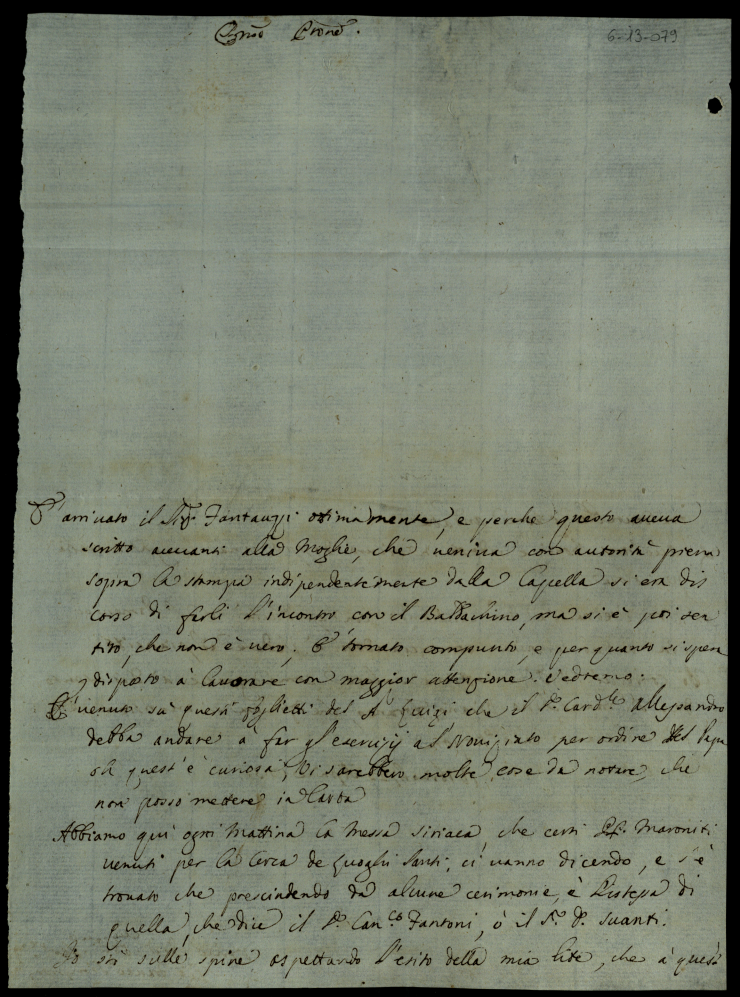 6-13-079
E' arrivato il Sig.r Fantauzzi ottimamente, e perche questo aueua
scritto auuanti alla Moglie, che ueniua con autorità piena
sopra la stampa indipendentemente dalla Capella si era dis
corso di farli l'incontro con il Baldachino, ma si è poi sen
tito, che non è uero. E' tornato compunto, e per quanto si spera
disposto à lauorare con maggior attenzione. Vedremo.
E' uenuto sù questi foglietti del che il S.r Card.le Allessandro
debba andare à far gl'esercizij al Nouiziato per ordine del Papa
oh quest'è curiosa, Vi sarebbero molte cose da notare, che
non posso mettere in Carta
Abbiamo quì ogni Mattina la Messa siriaca, che certi PP. Maroniti
uenuti per la Cerca de Luoghi Santi, ci uanno dicendo, e s'è
trouato che prescindendo da alcune cerimonie, è l'istessa di
quella, che dice il S.r Can.co Fantoni, ò il S.r D. Suanti.
Io stò sulle spine aspettando l'esito della mia lite, che à quest'